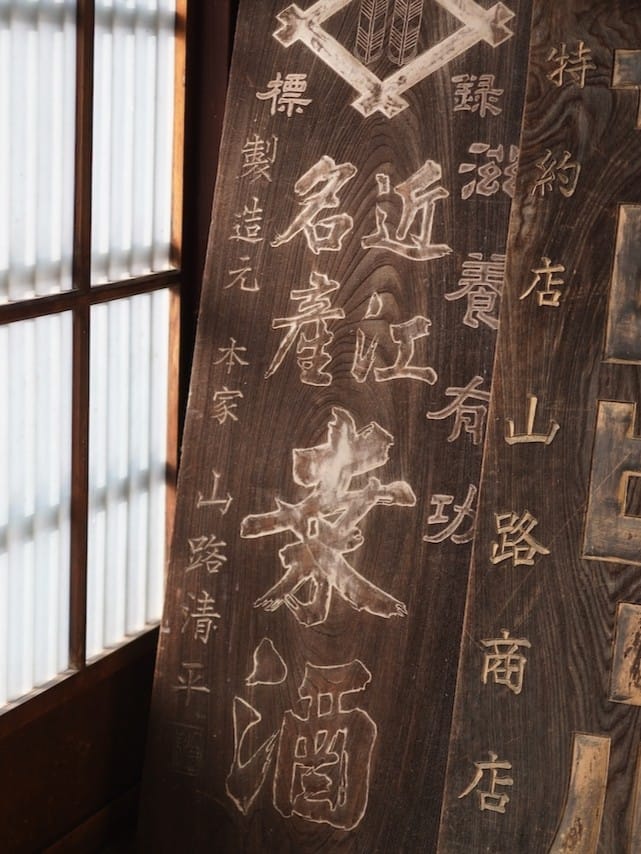 特約店 山路商店
録
滋養有功
近江
名產
桒酒
標
製造元 本家 山路清平